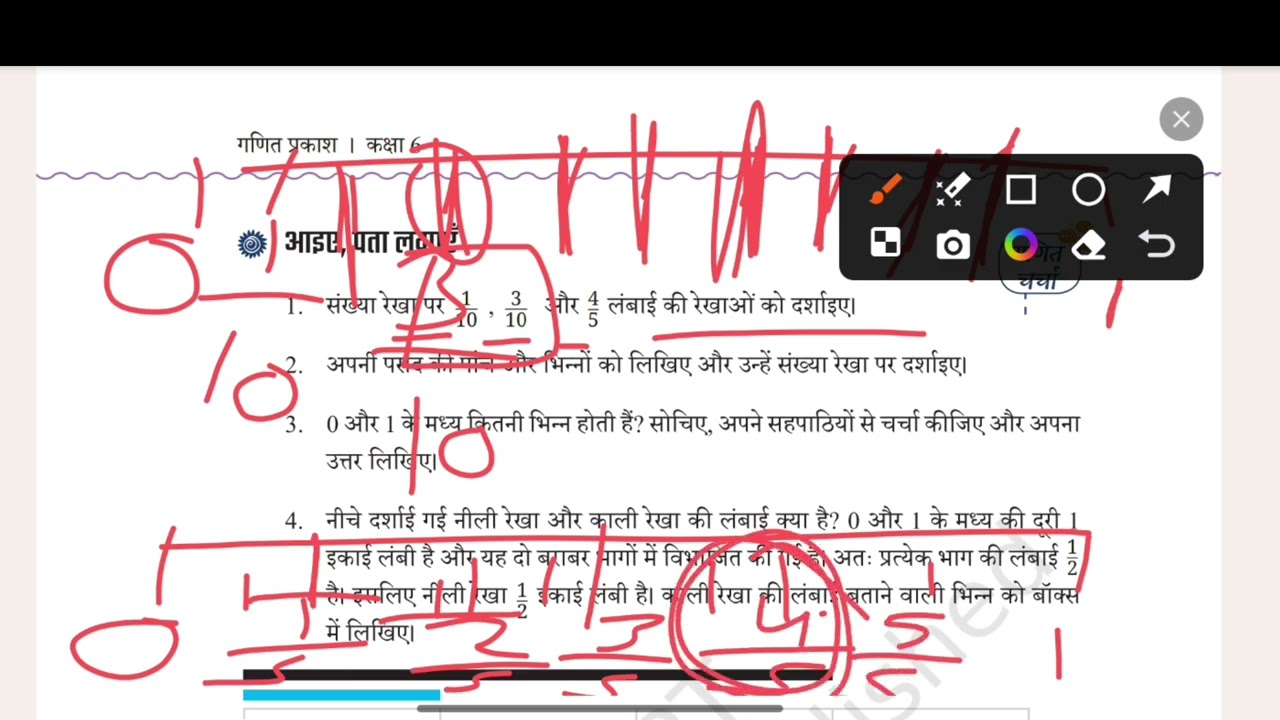 गणित प्रकाश । कक्षा 6
आइए, पता लगाएँ
गणित
चर्चा
1. संख्या रेखा पर 1/10 , 3/10 और 4/5 लंबाई की रेखाओं को दर्शाइए।
2. अपनी पसंद की पांच और भिन्नों को लिखिए और उन्हें संख्या रेखा पर दर्शाइए।
3. 0 और 1 के मध्य कितनी भिन्न होती हैं? सोचिए, अपने सहपाठियों से चर्चा कीजिए और अपना
उत्तर लिखिए।
4. नीचे दर्शाई गई नीली रेखा और काली रेखा की लंबाई क्या है? 0 और 1 के मध्य की दूरी 1
इकाई लंबी है और यह दो बराबर भागों में विभाजित की गई है। अतः प्रत्येक भाग की लंबाई 1/2
है। इसलिए नीली रेखा 1/2 इकाई लंबी है। काली रेखा की लंबाई बताने वाली भिन्न को बॉक्स
में लिखिए।
0
1
3
10
10
0
1/5
2/5
3/5
4/5
5/5
1